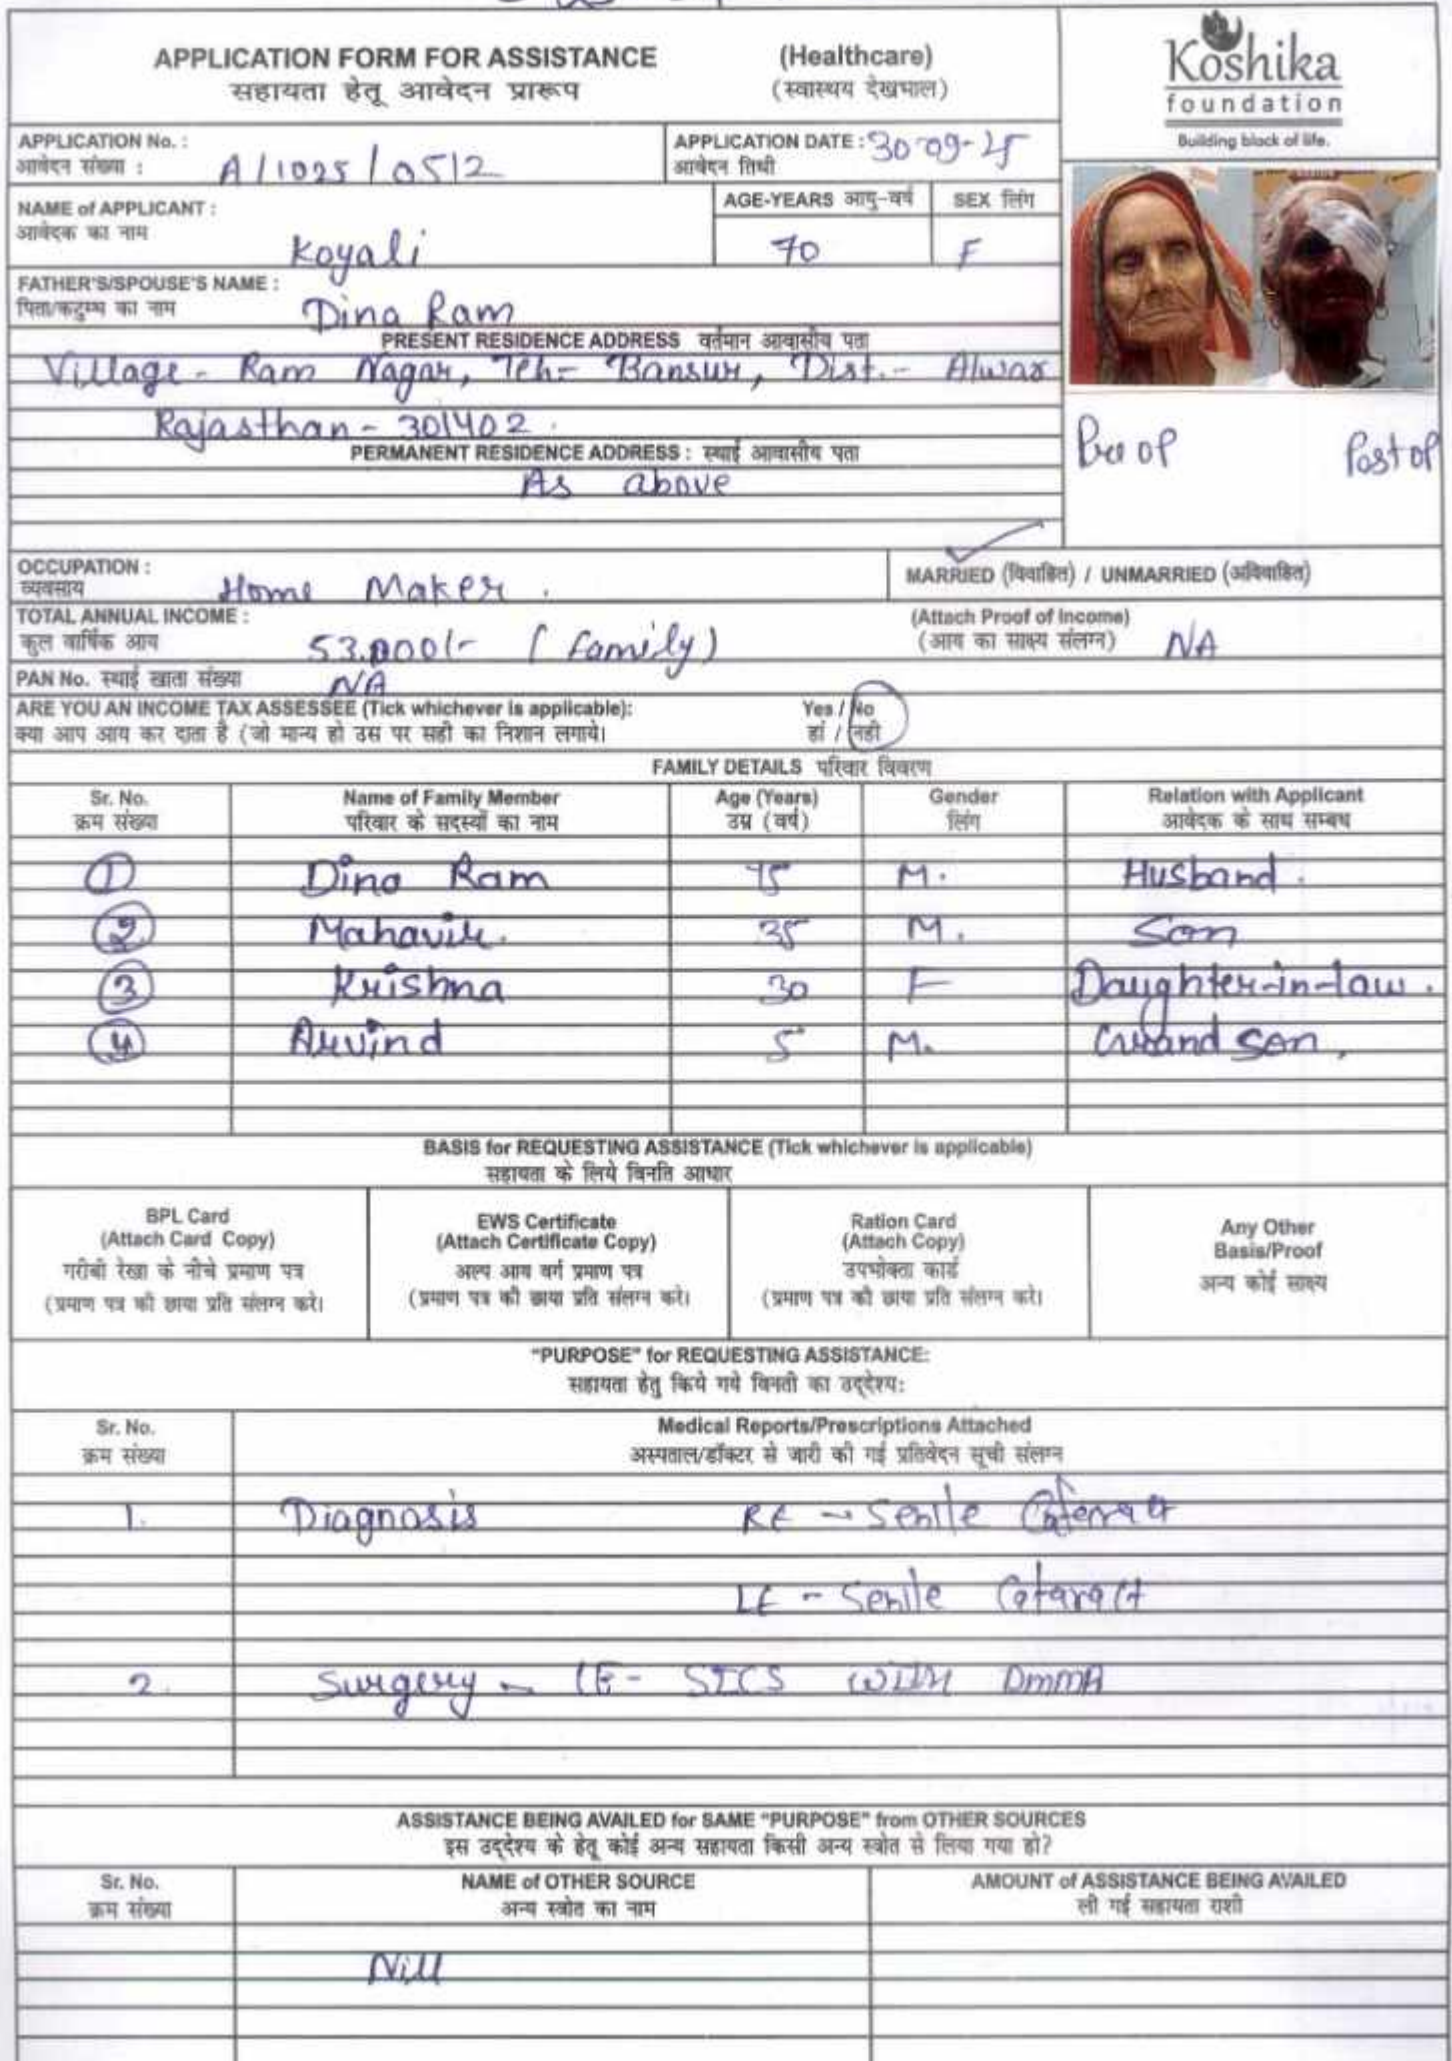 APPLICATION FORM FOR ASSISTANCE (Healthcare)
सहायता हेतू आवेदन प्रारूप (स्वास्थय देखभाल)
Koshika
foundation
Building block of life.
APPLICATION No. :
आवेदन संख्या : A/1025/0512
APPLICATION DATE : 30-09-25
आवेदन तिथी
NAME of APPLICANT :
आवेदक का नाम Koyali
AGE-YEARS आयु-वर्ष 70
SEX लिंग F
FATHER'S/SPOUSE'S NAME :
पिता/कटुम्ब का नाम Dina Ram
PRESENT RESIDENCE ADDRESS वर्तमान आवासीय पता
Village - Ram Nagar, Teh- Bansur, Dist.- Alwar
Rajasthan - 301402.
PERMANENT RESIDENCE ADDRESS : स्थाई आवासीय पता
As above
Pre op Post op
OCCUPATION :
व्यवसाय Home Maker.
MARRIED (विवाहित) / UNMARRIED (अविवाहित)
TOTAL ANNUAL INCOME :
कुल वार्षिक आय 53,000/- (family)
(Attach Proof of Income)
(आय का साक्ष्य संलग्न) NA
PAN No. स्थाई खाता संख्या NA
ARE YOU AN INCOME TAX ASSESSEE (Tick whichever is applicable): Yes / No
क्या आप आय कर दाता है (जो मान्य हो उस पर सही का निशान लगाये। हां / नही
FAMILY DETAILS परिवार विवरण
Sr. No. Name of Family Member Age (Years) Gender Relation with Applicant
क्रम संख्या परिवार के सदस्यों का नाम उम्र (वर्ष) लिंग आवेदक के साथ सम्बध
1 Dina Ram 75 M. Husband.
2 Mahavir. 35 M. Son
3 Krishna 30 F Daughter-in-law.
4 Arvind 5 M. Grand son.
BASIS for REQUESTING ASSISTANCE (Tick whichever is applicable)
सहायता के लिये विनति आधार
BPL Card
(Attach Card Copy)
गरीबी रेखा के नीचे प्रमाण पत्र
(प्रमाण पत्र की छाया प्रति संलग्न करे।
EWS Certificate
(Attach Certificate Copy)
अल्प आय वर्ग प्रमाण पत्र
(प्रमाण पत्र की छाया प्रति संलग्न करे।
Ration Card
(Attach Copy)
उपभोक्ता कार्ड
(प्रमाण पत्र की छाया प्रति संलग्न करे।
Any Other
Basis/Proof
अन्य कोई साक्ष्य
"PURPOSE" for REQUESTING ASSISTANCE:
सहायता हेतु किये गये विनती का उद्देश्य:
Sr. No. Medical Reports/Prescriptions Attached
क्रम संख्या अस्पताल/डॉक्टर से जारी की गई प्रतिवेदन सूची संलग्न
1. Diagnosis RE - Senile Cataract
LE - Senile Cataract
2. Surgery - LE - SICS WITH PMMA
ASSISTANCE BEING AVAILED for SAME "PURPOSE" from OTHER SOURCES
इस उद्देश्य के हेतू कोई अन्य सहायता किसी अन्य स्त्रोत से लिया गया हो?
Sr. No. NAME of OTHER SOURCE AMOUNT of ASSISTANCE BEING AVAILED
क्रम संख्या अन्य स्त्रोत का नाम ली गई सहायता राशी
Nill